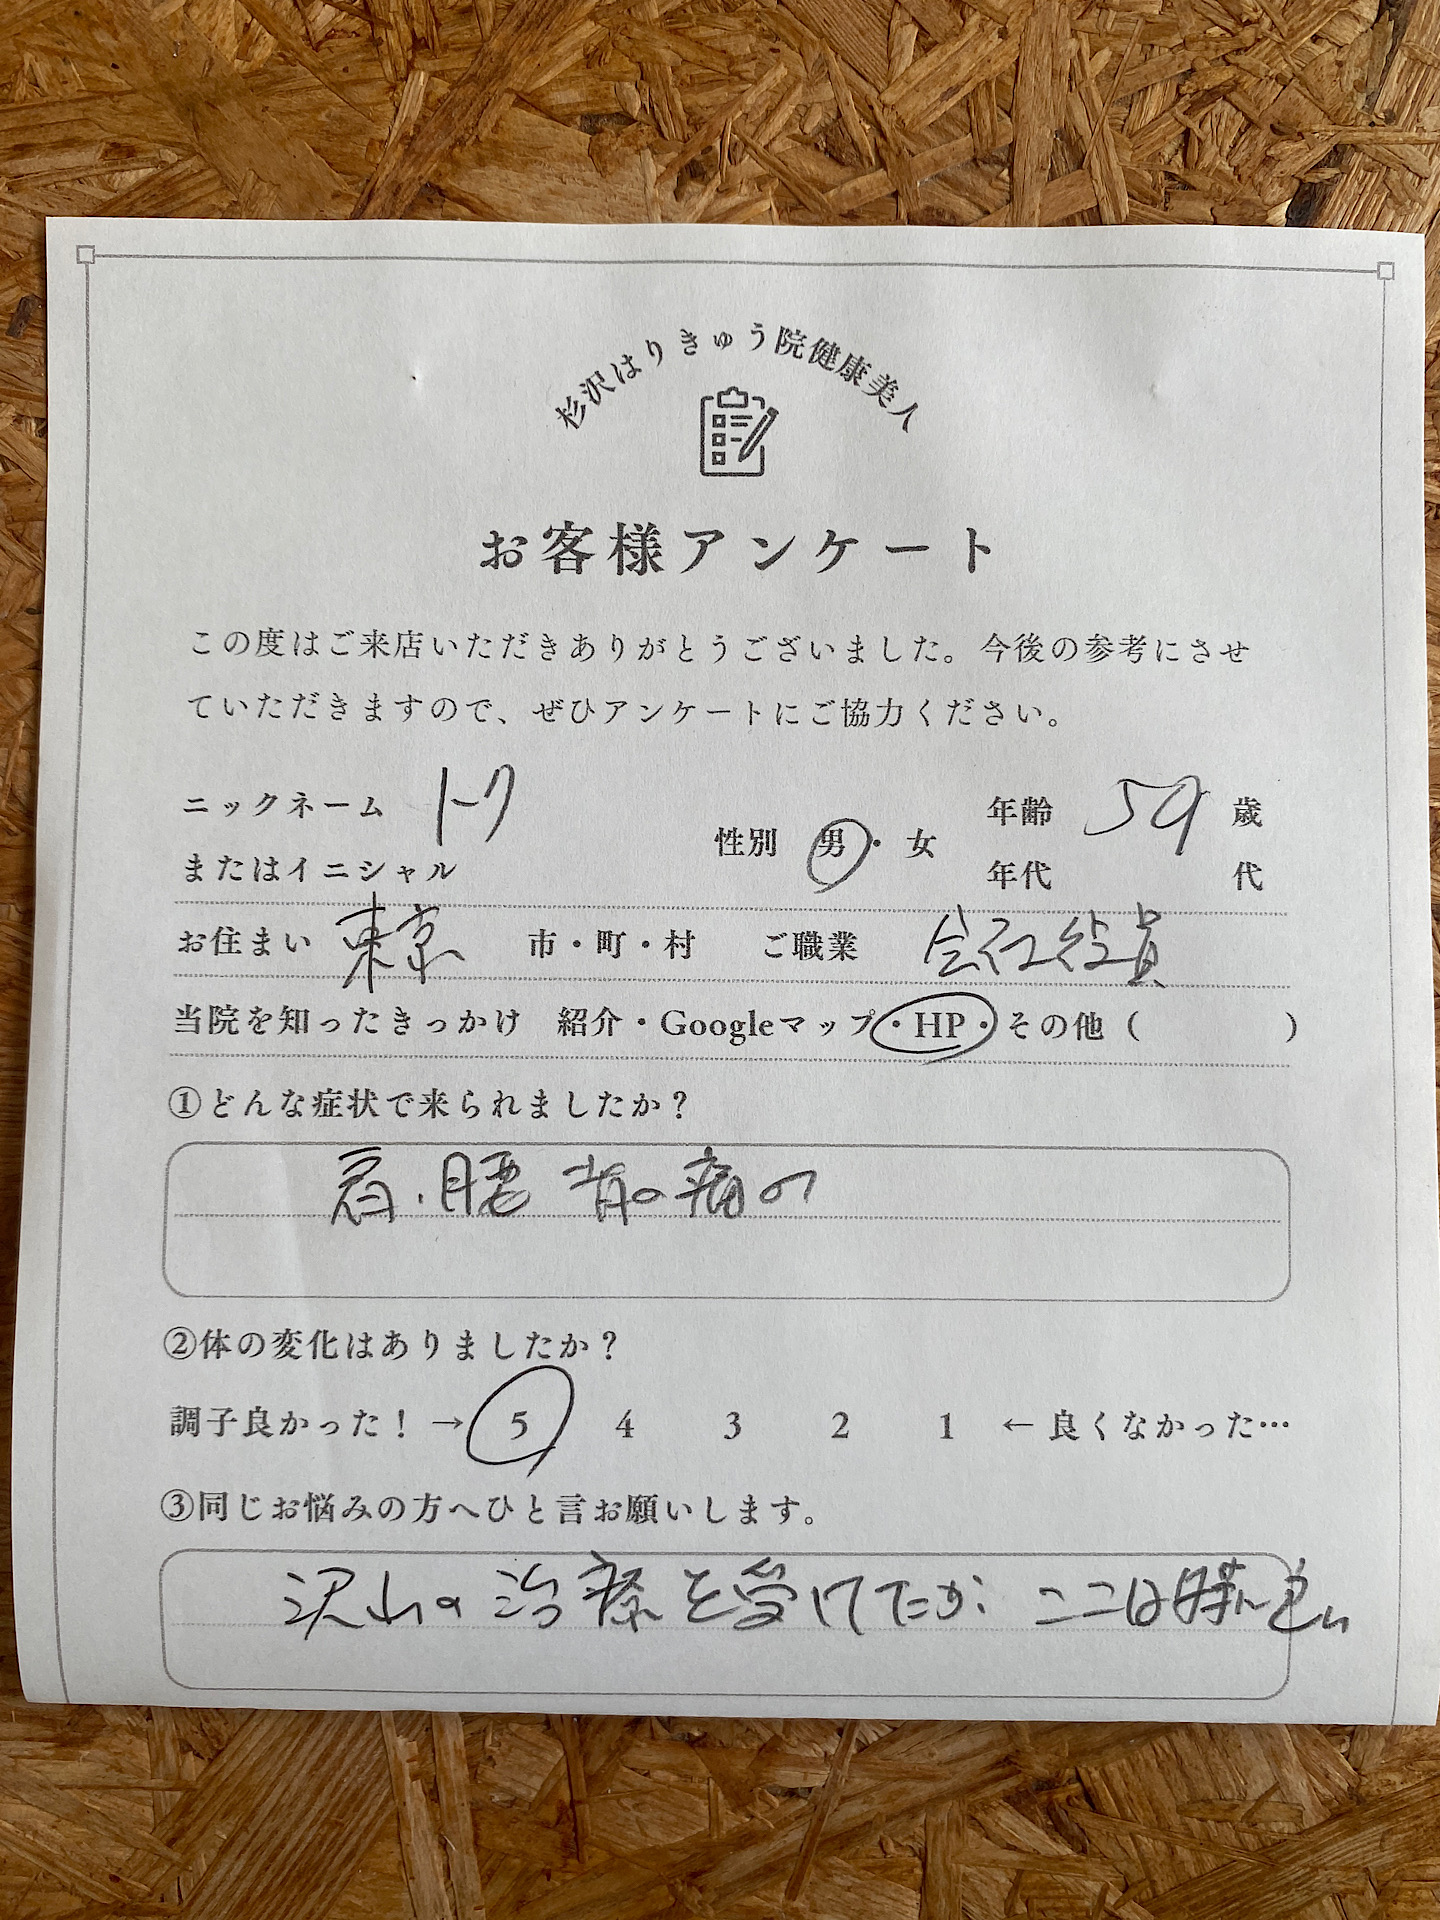 杉沢はりきゅう院健康美人
お客様アンケート
この度はご来店いただきありがとうございました。今後の参考にさせ
ていただきますので、ぜひアンケートにご協力ください。
ニックネーム トク 性別 男・女 年齢 59 歳
またはイニシャル 年代 代
お住まい 東京 市・町・村 ご職業 会社役員
当院を知ったきっかけ 紹介・Googleマップ・HP・その他( )
①どんな症状で来られましたか?
肩・腰 背の痛の
②体の変化はありましたか?
調子良かった! → 5 4 3 2 1 ← 良くなかった…
③同じお悩みの方へひと言お願いします。
沢山の治療を受けてたが ここは